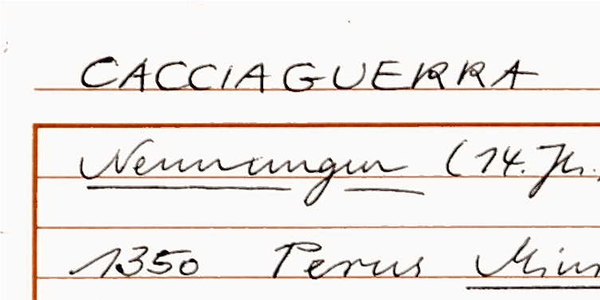 CACCIAGUERRA
Nennungen (14. Jh.
1350 Perus Min